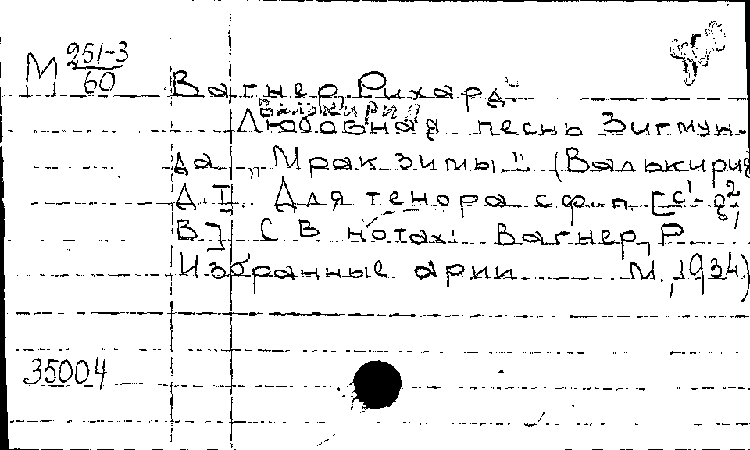 М 251-3
60
Вагнер, Рихард
Валькирия
Любовная песнь Зигмун-
да "Мрак зимы" (Валькирия
Д. I. Для тенора с ф-п. [c¹-g²,
В] (В нотах: Вагнер, Р.
Избранные арии М., 1934)
35004